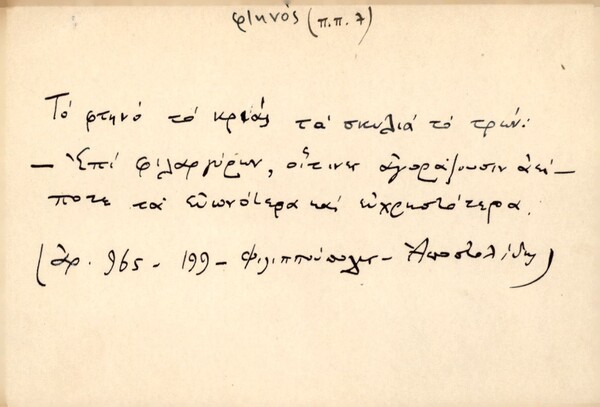 φτηνός (π.π. 7)
Τό φτηνό τό κριάς τά σκυλιά τό τρών:
— Ἐπί φιλαργύρων, οἵτινες ἀγοράζουσιν ἀεί-
ποτε τά εὐωνότερα καί εὐχρηστότερα.
(ἀρ. 965 - 199 - Φιλιππούπολις - Ἀποστολίδης)